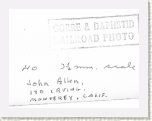 RAILROAD PHOTO
HO 3½ mm. scale
John Allen,
190 IRVING,
MONTEREY, CALIF.